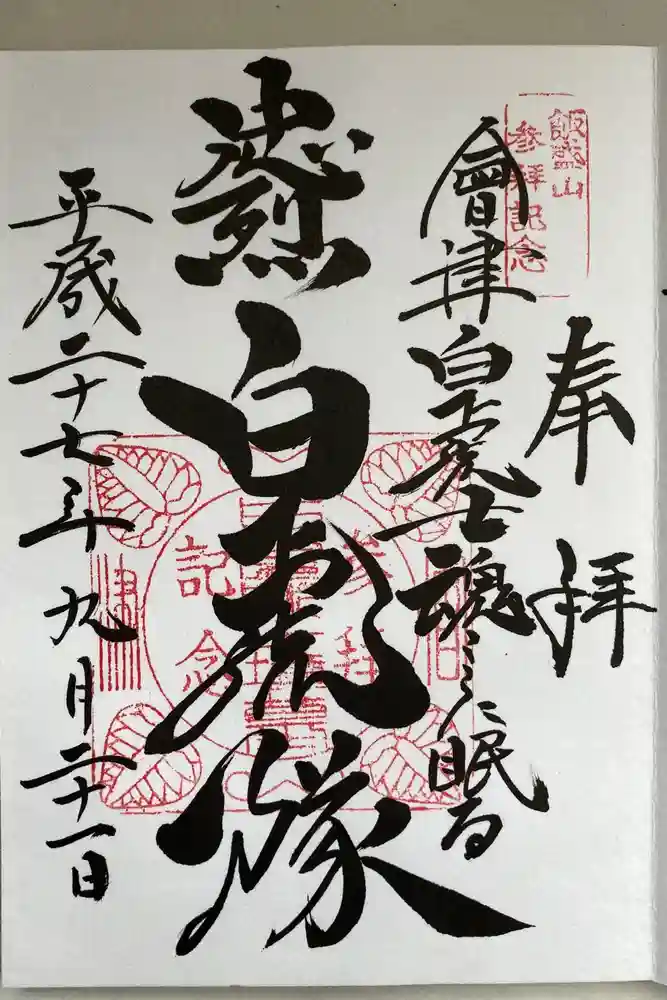 飯盛山
参拝記念
奉拝
會津白虎士魂ここに眠る
忠烈白虎隊
平成二十七年九月二十一日
参拝
記念